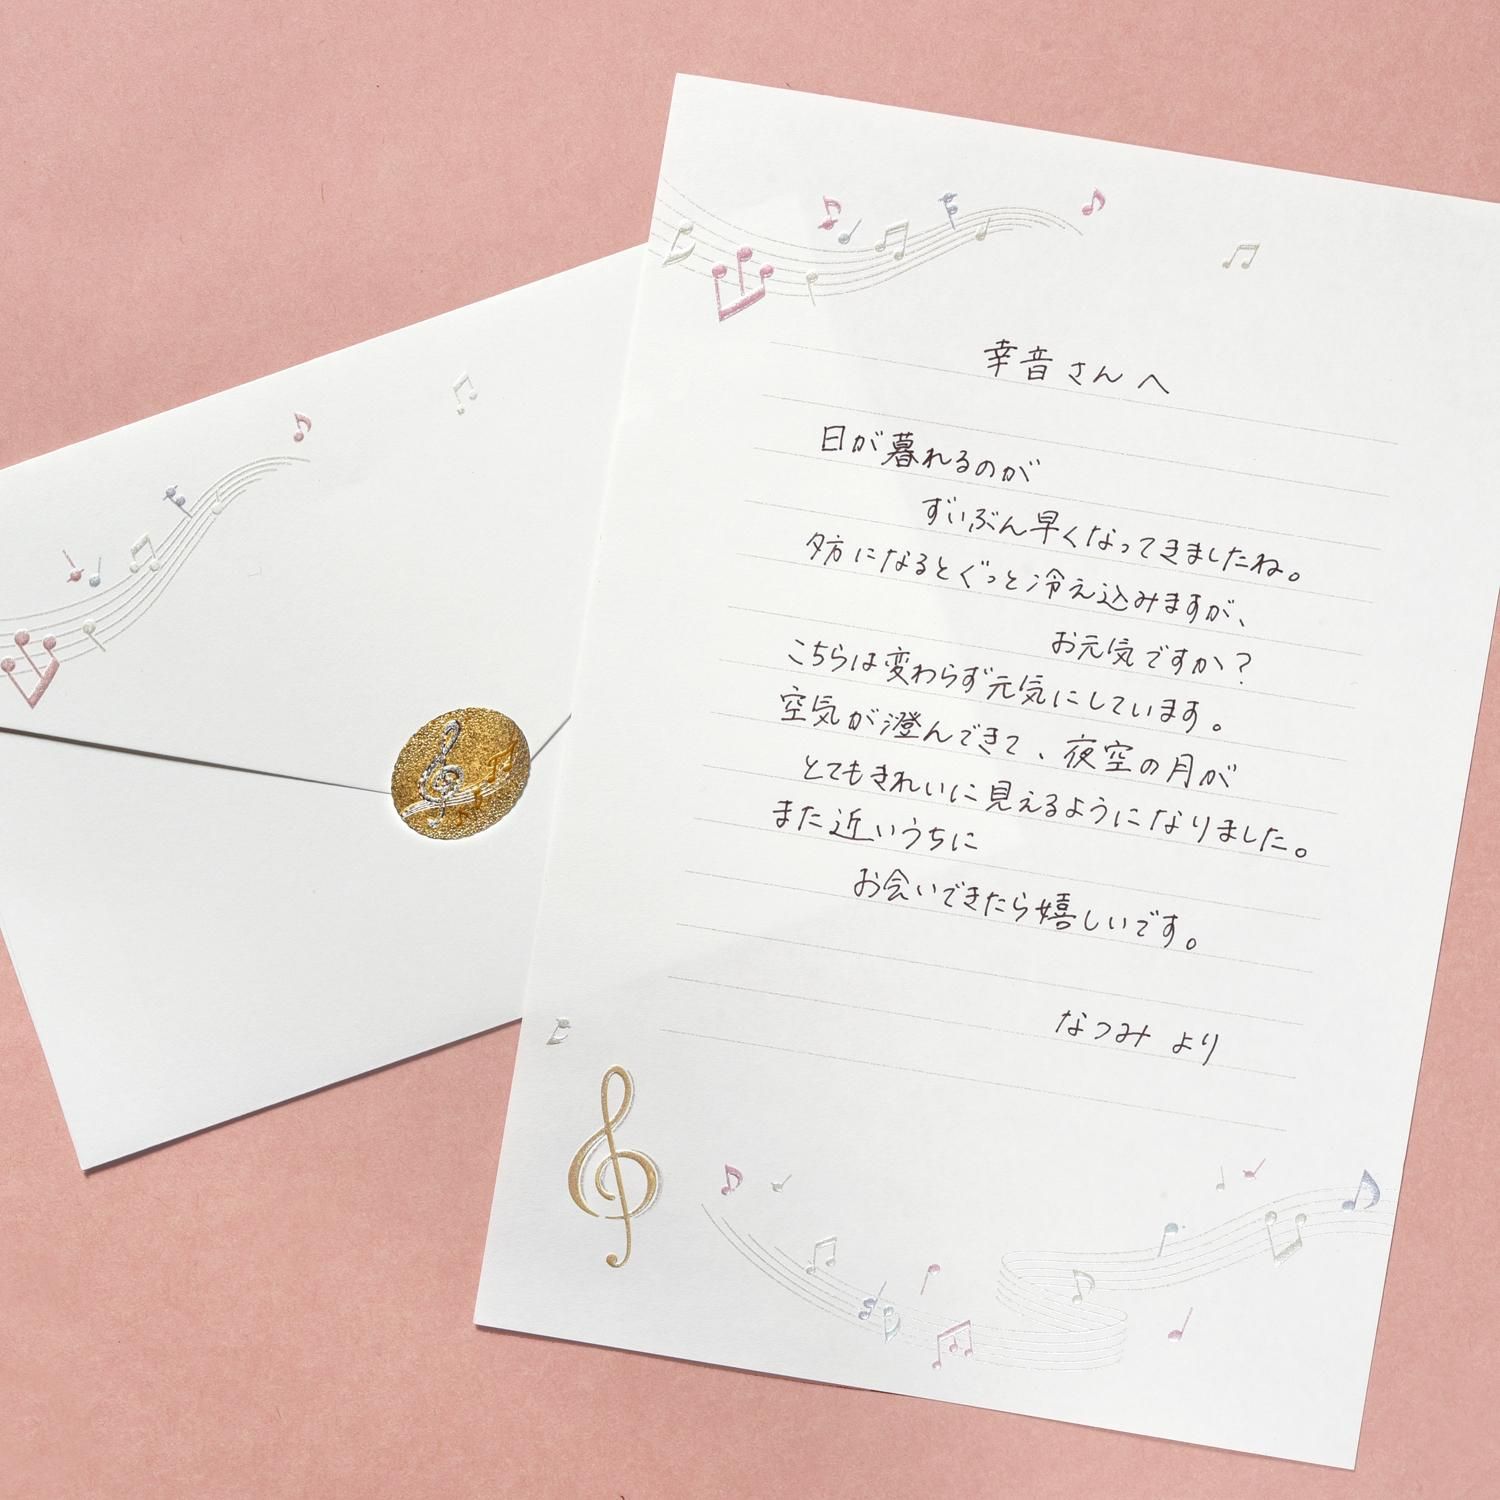 幸音さんへ
日が暮れるのが
ずいぶん早くなってきましたね。
夕方になるとぐっと冷え込みますが、
お元気ですか？
こちらは変わらず元気にしています。
空気が澄んできて、夜空の月が
とてもきれいに見えるようになりました。
また近いうちに
お会いできたら嬉しいです。
なつみ より